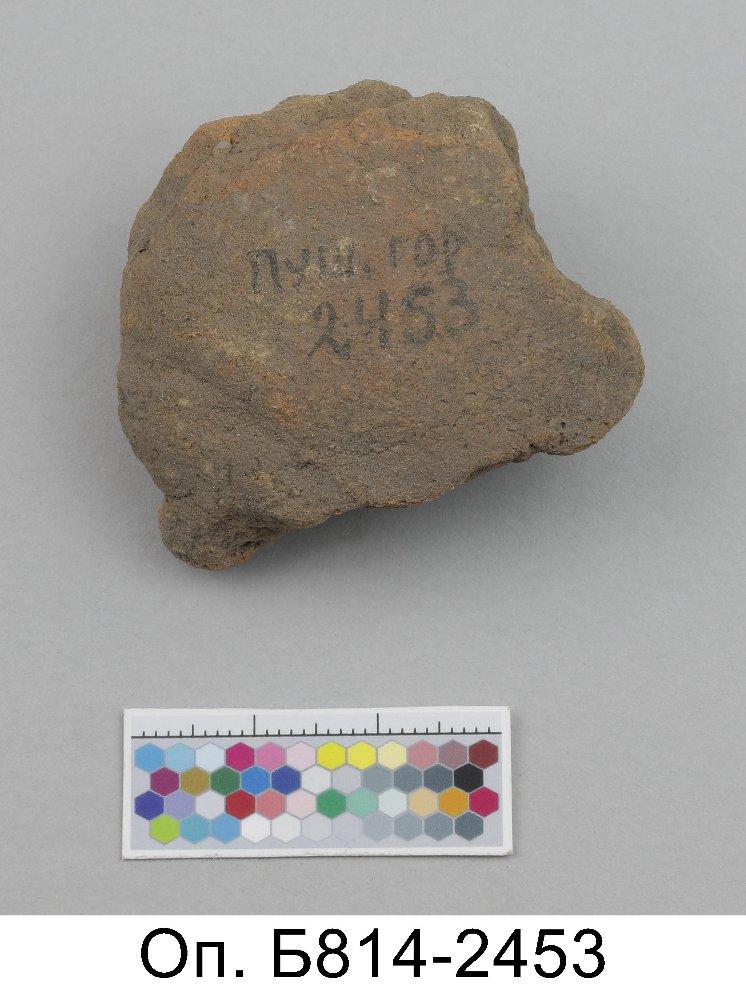 пуш. гор
2453
Оп. Б814-2453